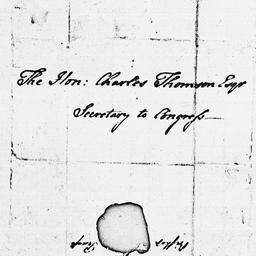 The Hon: Charles Thomson Esqr
Secretary to Congress